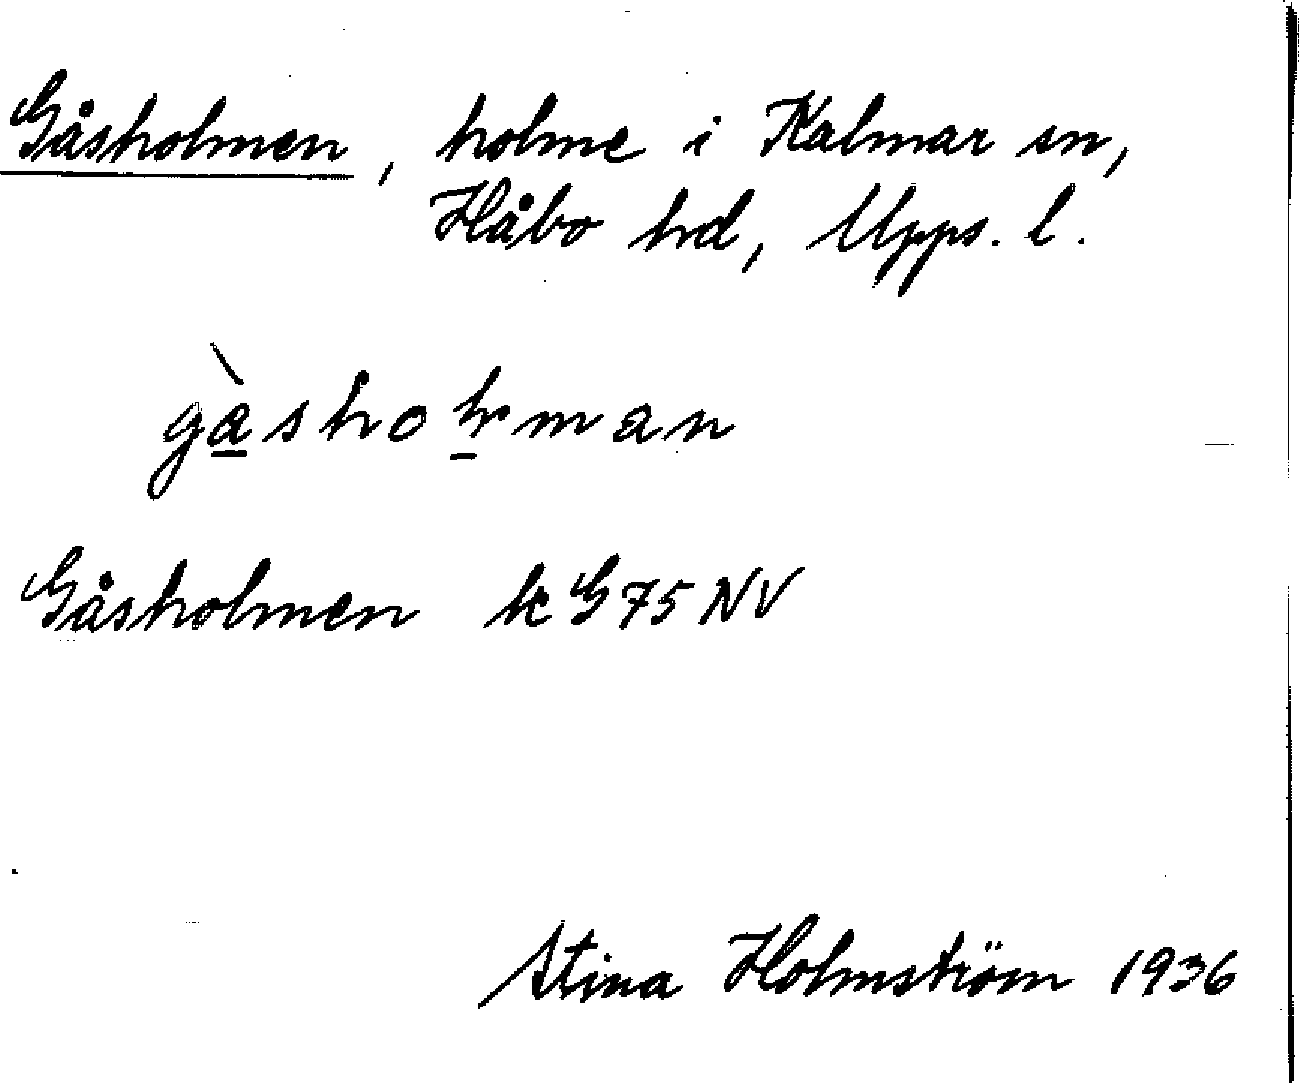 Gåsholmen, holme i Kalmar sn,
Håbo hd, Upps. l.
Gåsholmen k G 75 NV
Stina Holmström 1936